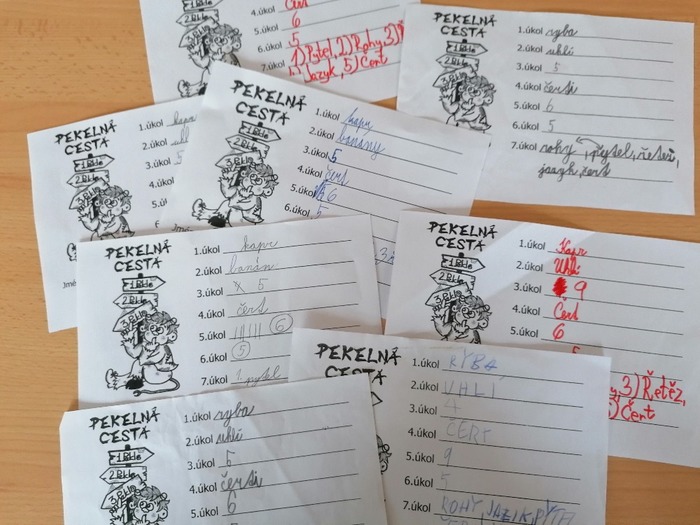 4.úkol Čert
5.úkol 6
6.úkol 5
7.úkol 1) Pytel, 2) Rohy, 3)
Jazyk, 5) Čert
1.úkol ryba
2.úkol uhlí
3.úkol 5
4.úkol čerti
5.úkol 6
6.úkol 5
7.úkol rohy, pytel, řetěz,
jazyk, čert
PEKELNÁ
CESTA
1.Peklo
PEKELNÁ
CESTA
1.Peklo
2.Peklo
3.Peklo
1.úkol kapr
2.úkol banány
3.úkol 5
4.úkol čert
5.úkol 6
6.úkol 5
PEKELNÁ
CESTA
1.Peklo
2.Peklo
3.Peklo
1.úkol kapr
2.úkol uhlí
3.úkol 5
4.úkol
5.úk
Jmé
PEKELNÁ
CESTA
1.Peklo
2.Peklo
3.Peklo
1.úkol kapr
2.úkol banán
3.úkol 5
4.úkol čert
5.úkol 6
6.úkol 5
7.úkol 1 pytel
PEKELNÁ
CESTA
1.Peklo
2.Peklo
3.Peklo
1.úkol Kapr
2.úkol Uhlí
3.úkol 9
4.úkol Čert
5.úkol 6
3) Řetěz,
Čert
PEKELNÁ
CESTA
1.úkol RYBA
2.úkol UHLÍ
3.úkol 4
4.úkol ČERT
5.úkol 9
6.úkol 5
7.úkol ROHY, JAZIK, PYTEL
PEKELNÁ
CESTA
1.Peklo
2.Peklo
3.Peklo
1.úkol ryba
2.úkol uhlí
3.úkol 5
4.úkol čerti
5.úkol 6